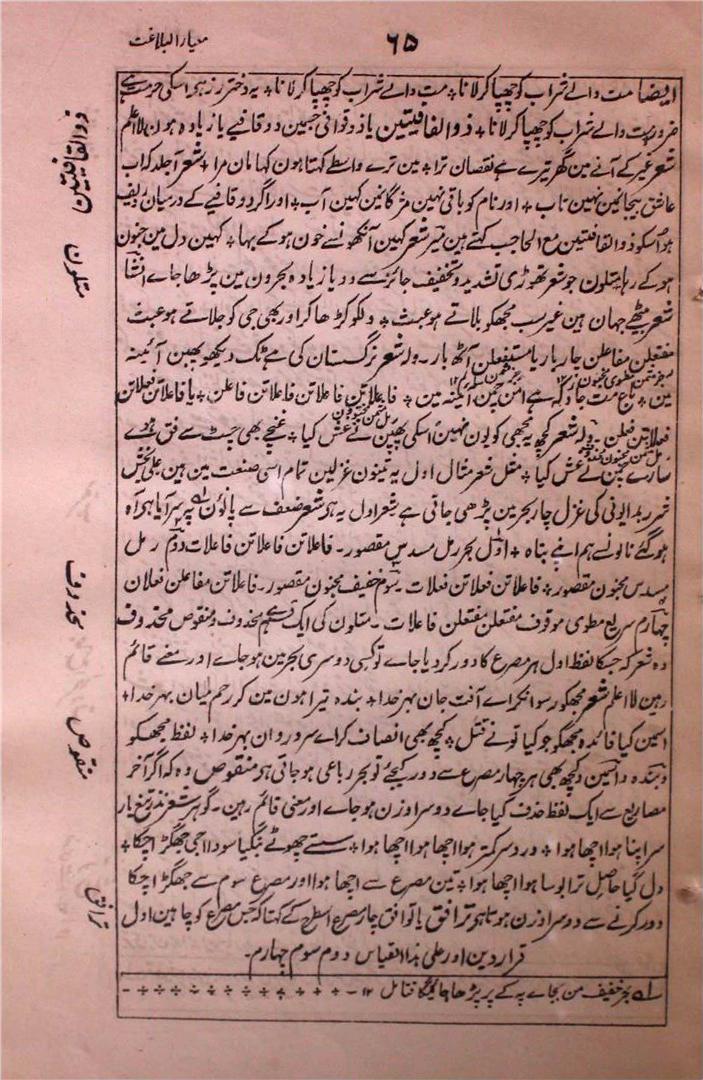 معیار البلاغت
۶۵
ایضا مت والے شراب کو چھپا کر لانا ٭ مت والے شراب کو چھپا کر لانا ٭ یہ دختر رز ہی اسکی حرمت ہے
ضرور ٭ مت والے شراب کو چھپا کر لانا ٭ ذوالقافیتین یا ذوقوافی جسمین دو قافیے یا زیادہ ہون لا اعلم
شعر غیر کے آنے مین گھر تیرے ہے نقصان ترا ٭ مین ترے واسطے کہتا ہون کہا مان مرا ٭ شعر آجلد کہ اب
عاشق بیجا نمین نہین تاب ٭ اور نام کو باقی نہین مژگانمین کہین آب ٭ اور اگر دو قافیے کے درمیان ردیف
ہو اسکو ذوالقافیتین مع الحاجب کہتے ہین میر شعر کہین آنکھونسے خون ہو کے بہا ٭ کہین دل مین جنون
ہو کے رہا متلون جو شعر تھوڑی تشدید و تخفیف جائز سے دو یا زیادہ بحرون مین پڑھا جاے انشا
شعر بیٹھے جہان ہین غیر سب مجھکو بلاتے ہو عبث ٭ دلکو کڑھا کر اور بھی جی کو جلاتے ہو عبث
مفتعلن مفاعلن چار بار یا مستفعلن آٹھ بار ۔ ولہ شعر نرگستان کی ہے تک دیکھو پھبن آئینہ
مین ٭ باغ مت جاؤ کہ ہے امن چمن آئینہ مین ٭ فاعلاتن فاعلاتن فاعلاتن فاعلن ٭ یا فاعلاتن فعلاتن
فعلاتن فعلن ۔ ولہ شعر کچھ یہ مجھی کو یون نہین اسکی پھبن نے غش کیا ٭ غنچے بھی چٹ سے فق ہوے
سارے چمن نے غش کیا ٭ مفتعلن شعر مثال اول یہ تینون غزلین تمام اسی صنعت مین ہین علی بخش
شرر بدایونی کی غزل چار بحر مین پڑھی جاتی ہے شعر اول یہ ہی شعر ضعف سے پاؤن پہ سر آیا ہی آہ
ہو گئے نالونسے ہم اپنے تباہ ٭ اول بحر رمل مسدس مقصور ۔ فاعلاتن فاعلاتن فاعلات دوم رمل
مسدس مخبون مقصور ٭ فاعلاتن فعلاتن فعلات ۔ سوم خفیف مخبون مقصور ۔ فاعلاتن مفاعلن فعلان
چہارم سریع مطوی موقوف مفتعلن مفتعلن فاعلات ۔ متلون کی ایک قسم محذوف و منقوص محذوف
وہ شعر کہ جسکا لفظ اول ہر مصرع کا دور کر دیا جاے تو کسی دوسری بحر مین ہو جاے اور معنے قائم
رہین لا اعلم شعر مجھکو رسوا نکر اے آفت جان بہر خدا ٭ بندہ تیرا ہون مین کر رحم میان بہر خدا ٭
اسمین کیا فائدہ مجھکو جو کیا تو نے قتل ٭ کچھ بھی انصاف کر اے سرو روان بہر خدا ٭ لفظ مجھکو
و بندہ و اسمین و کچھ بھی ہر چہار مصرع سے دور کیجئے تو بحر رباعی ہو جاتی ہی منقوص وہ کہ اگر آخر
مصاریع سے ایک لفظ حذف کیا جاے دوسرا وزن ہو جاے اور معنی قائم رہین ۔ گوہر شعر نذر تیغ یار
سر اپنا ہوا اچھا ہوا ٭ درد سر کمتر ہوا اچھا ہوا اچھا ہوا ٭ سستے چھوٹے بنگیا سودا اجی جھگڑا چکا ٭
دل گیا حاصل ترا بوسا ہوا اچھا ہوا ٭ تین مصرع سے اچھا ہوا اور مصرع سوم سے جھگڑا چکا
دور کرنے سے دوسرا وزن ہوتا ہی ترافق یا توافق چار مصرع اسطرح کے کہتا کہ جس مصرع کو چاہین اول
قرار دین اور علی ہذا القیاس دوم سوم چہارم ۔
لہ بحر خفیف من بجاے پہ کے پر پڑھا جائیگا فتامل ۱۲
ذوالقافیتین
متلون
محذوف
منقوص
ترافق